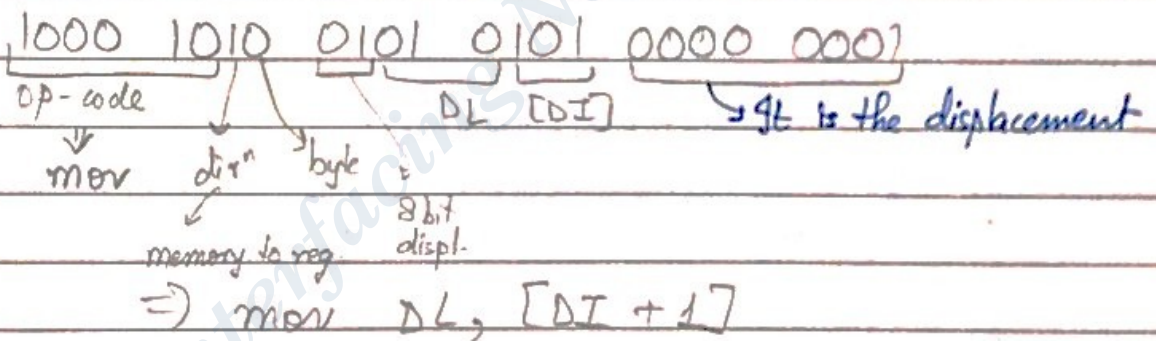 1000 1010 0101 0101 0000 0001
op-code DL [DI] It is the displacement
mov dirⁿ byte =
8 bit
memory to reg displ.
=) mov DL, [DI + 1]